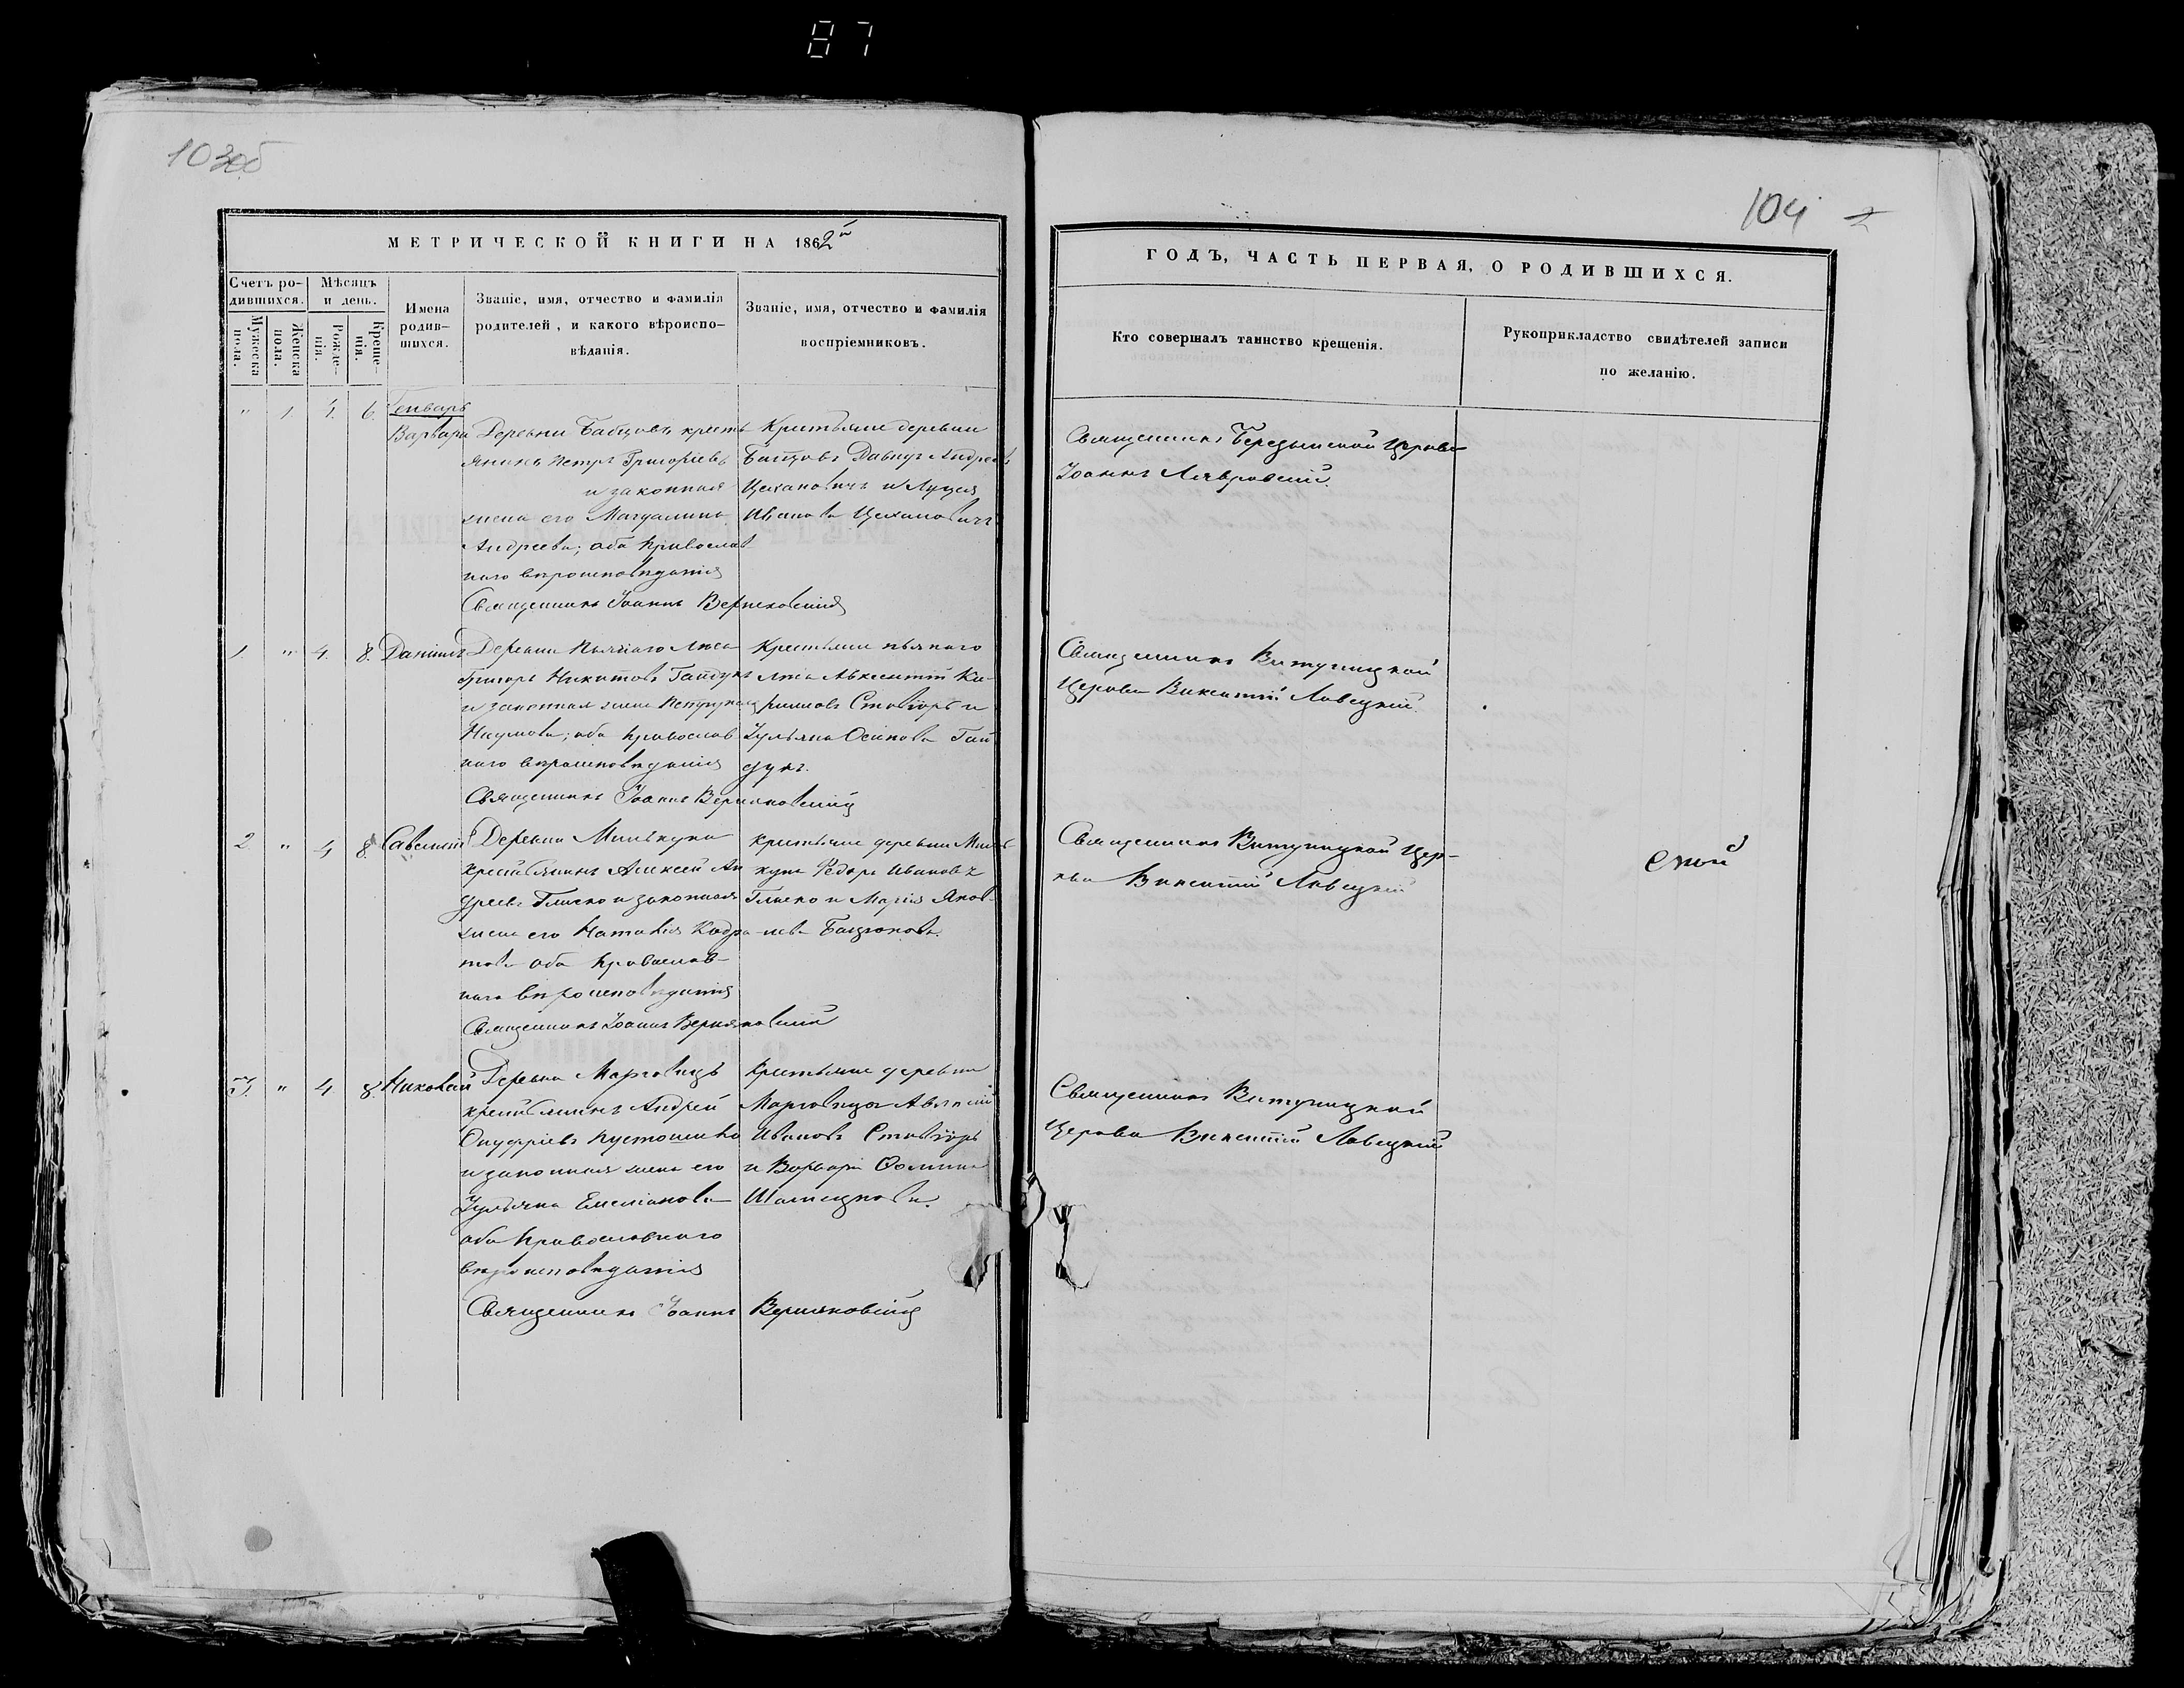 87
103об
104
МЕТРИЧЕСКОЙ КНИГИ НА 1862й
Счетъ ро-
дившихся.
Мужеска
пола.
Женска
пола.
Мѣсяцъ
и день.
Рожде-
нія.
Креще-
нія.
Имена
родив-
шихся.
Званіе, имя, отчество и фамилія
родителей, и какого вѣроиспо-
вѣданія.
Званіе, имя, отчество и фамилія
воспріемниковъ.
ГОДЪ, ЧАСТЬ ПЕРВАЯ, О РОДИВШИХСЯ.
Кто совершалъ таинство крещенія.
Рукоприкладство свидѣтелей записи
по желанію.
Генварь
" 1 1. 6.
Варвара
Деревни кресть
янинъ Петръ Григоріевъ
и законная
жена его Магдалина
Андреева; оба православ
наго вѣроисповѣданія
Священникъ Іоаннъ
Крестьяне деревни
Давидъ Андреевъ
Цехановичъ и Луція
Иванова Цехановичъ
Священникъ Березынской Церкви
Іоаннъ
1. " 4. 8. Даніилъ
Деревни Пьянаго лѣса
Григоръ Никитовъ Гайдукъ
и законная жена
Наумова; оба православ
наго вѣроисповѣданія
Священникъ Іоаннъ
Крестьяне пьянаго
лѣса Авксентій Ки-
Ставоръ и
Іульяна Осипова Гай
дукъ.
Священникъ Витуницкой
Церкви Викентій Лавецкій.
2. " 4 8. Савелій
Деревни Милькуна
крестьянинъ Алексей Ан
дреевъ Глиско и законная
жена его Наталія Кодра
това оба православ-
наго вѣроисповѣданія
Священникъ Іоаннъ
крестьяне деревни Миль
куна Ѳедоръ Ивановъ
Глиско и Марія Яков-
лева
Священникъ Витуницкой Цер-
кви Викентій Лавецкій
3. " 4 8. Николай
Деревни
крестьянинъ Андрей
Онуфріевъ
и законная жена его
Іульяна Емеліанова
оба православнаго
вѣроисповѣданія
Священникъ Іоаннъ
Крестьяне деревни
Ивановъ Ставоръ
и Варвара Ѳомина
Священникъ Витуницкой
Церкви Викентій Лавецкій